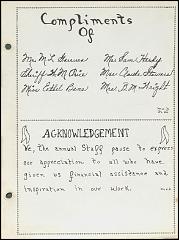 Compliments
Of
Mrs. M. L.
Mrs. Sam Hardy
Sheriff G. M. Rice
Mrs. Claude
Miss Ethel
Mrs. B. M. Wright
ACKNOWLEDGEMENT
We, the annual Staff pause to express
our appreciation to all who have
given us financial assistance and
inspiration in our work.